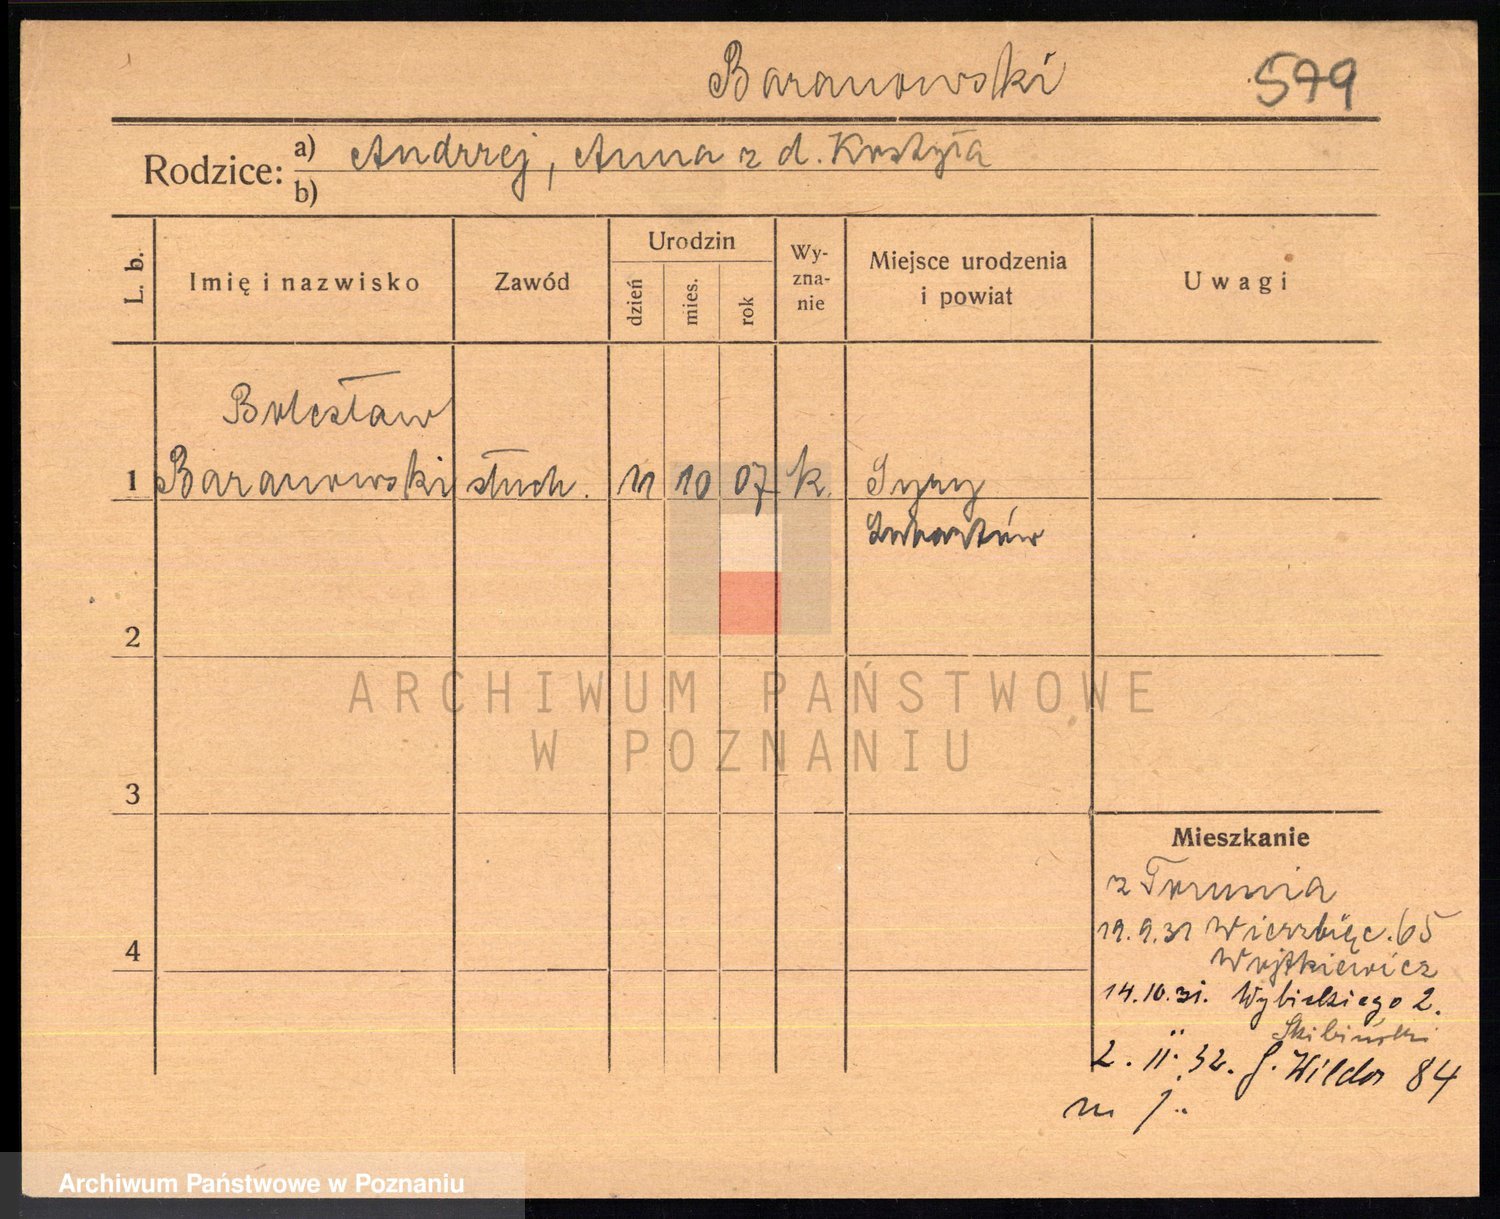 Baranowski
579
Rodzice: a) Andrzej, Anna z d. Kostyła
b)
L. b.
Imię i nazwisko
Zawód
Urodzin
dzień
mies.
rok
Wy-
zna-
nie
Miejsce urodzenia
i powiat
Uwagi
Bolesław
1 Baranowski słuch. 11 10 07 k. Syry
Lubartów
2
ARCHIWUM PAŃSTWOWE
W POZNANIU
3
Mieszkanie
z Torunia
19.9.31 Wierzbięc. 65
Wojtkiewicz
4
14.10.31. Wybickiego 2.
Skibiński
2. II. 32. G. Wilda 84
Archiwum Państwowe w Poznaniu